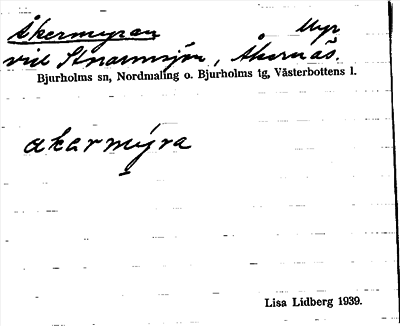 Åkermyran Myr
vid Stavarsjön, Åkernäs.
Bjurholms sn, Nordmaling o. Bjurholms tg, Västerbottens l.
akarmýra
Lisa Lidberg 1939.